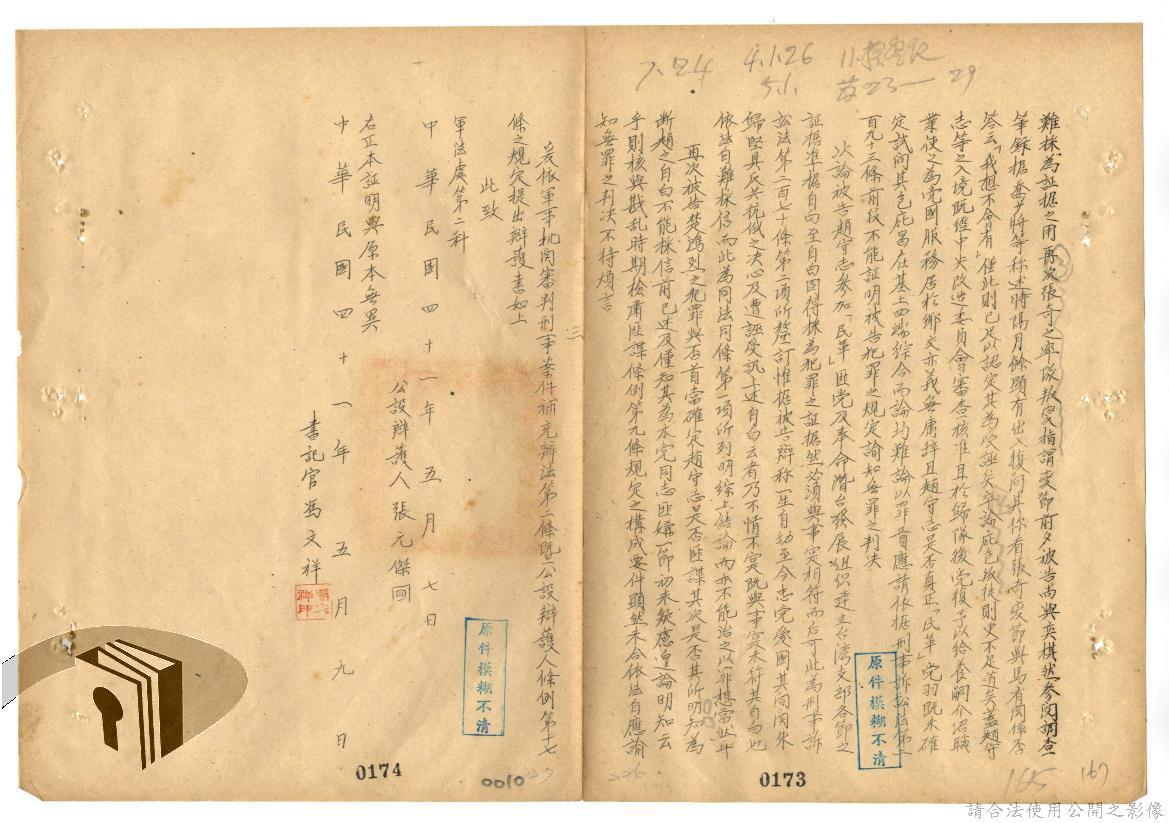 7.24 4.1.26
5.1. 23— 29
難採為証据之用再次張奇之率隊叛變指謂變節前夕被告尚與奕棋然參閱調查
筆錄据喬少將等称述時隔月餘顯有出入復问其你看張奇变節與馬有関係否
答云「我想不會有」僅此則已足以認定其為受誣矣
志等之入境既經中央改造委員會審查核准且於歸隊後党復予以給養嗣介绍職
業使之為党國服務居於鄉交亦義無庸辞且趙守志是否真正「民革」党羽既未確
定試问其包庇曷在基上四端綜合而論均難論以罪責應請依据刑事訴訟法第二
百九十三條前段不能証明被告犯罪之規定諭知無罪之判决
次論被告趙守志參加「民革」匪党及奉命潛台發展組织建立台湾支部各節之
証据准据自白至自白固得採為犯罪之証据然必須與事实相符而后可此為刑事訴
訟法第二百七十條第二項所釐訂惟据被告辯称一生自幼至今忠党愛國其间
歸堅具反共抗俄之决心及遭誣受訊上述自白云者乃不情不实既與事实未符其自白也
依法自難採信而此為同法同條第一項所列明綜上結論而亦不能治之以罪
再次被告楚鴻烈之犯罪與否首當確定趙守志是否匪諜其次是否其所明知為
断趙之自白不能採信前已述及僅知其為本党同志匪嫌一節初未疑慮遑論明知云
乎則核與戡乱時期檢肅匪諜條例第九條規定之構成要件顯然未合依法自應諭
知無罪之判决不待煩言
三
爰依軍事机関審判刑事案件補充辦法第二條暨公設辯護人條例第十七
條之規定提出辯護書如上
此致
軍法處第二科
中華民國四十一年五月七日
公設辯護人張元傑
右正本証明與原本無異
書記官馮文祥
中華民國四十一年五月九日
原件模糊不清
原件模糊不清
0174
0010
227
226
0173
165
167
請合法使用公開之影像